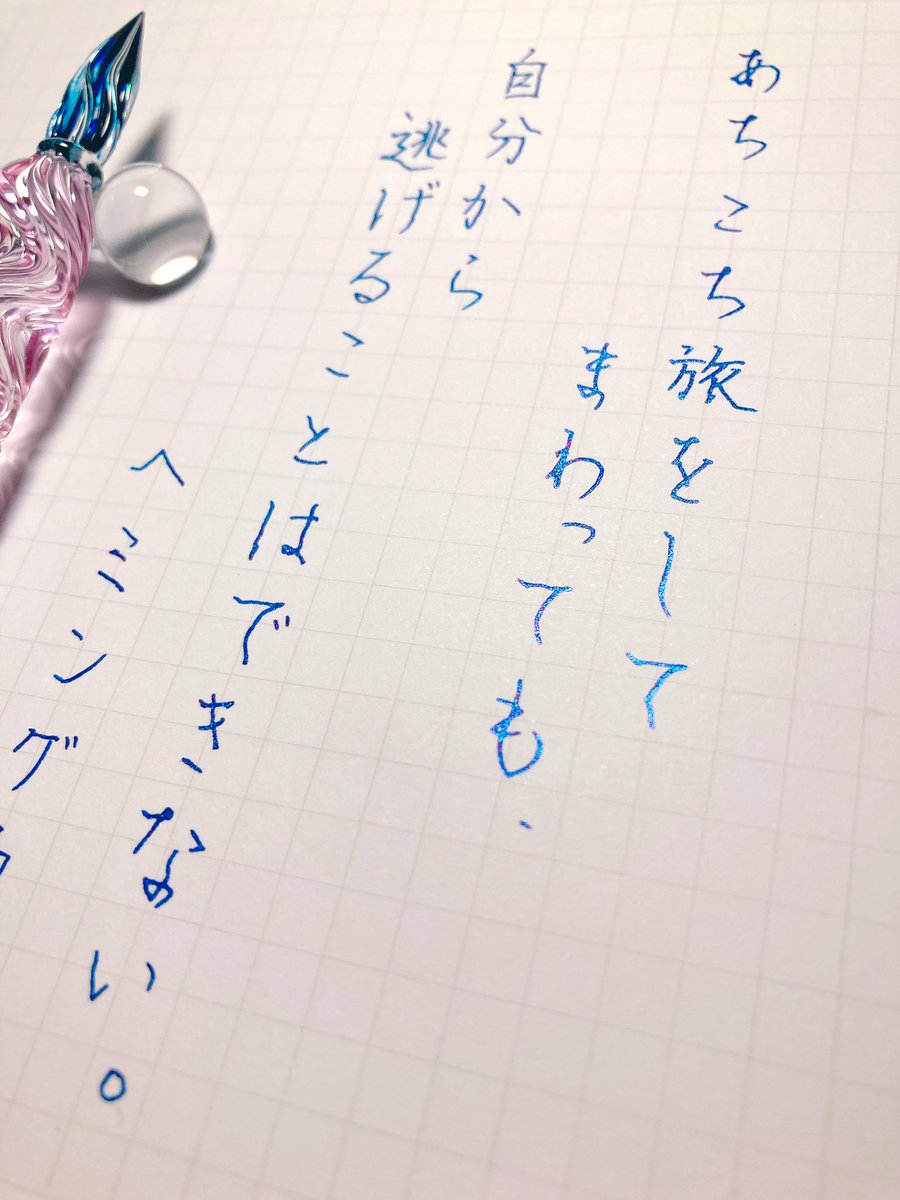 あちこち旅をして
まわっても、
自分から
逃げることはできない。
ヘミング